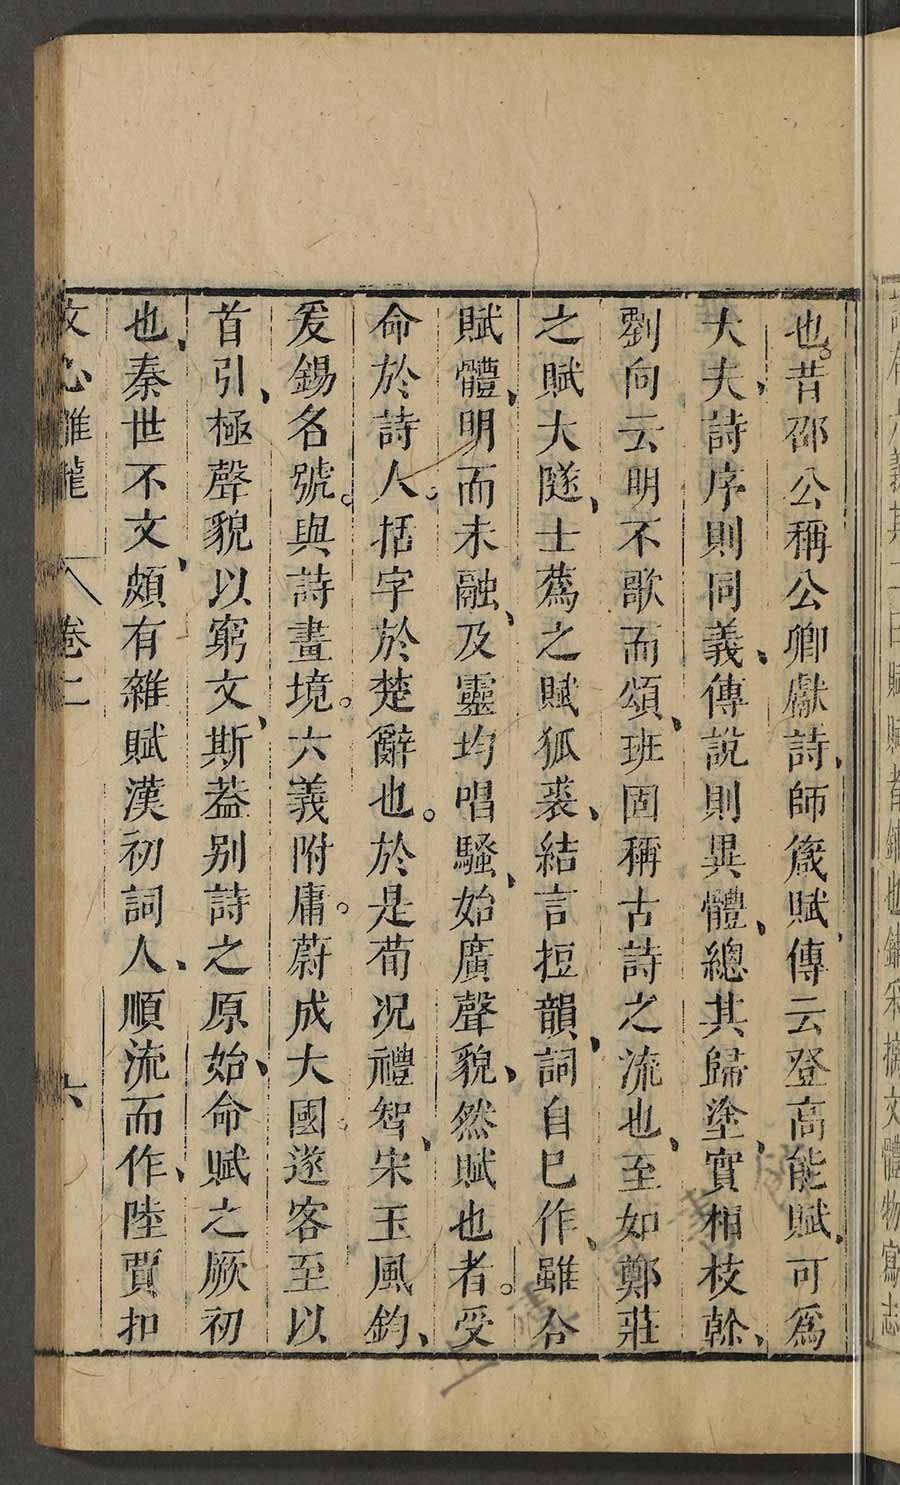 也。昔邵公稱公卿獻詩、師箴賦、傳云登高能賦、可爲
大夫、詩序則同義、傳說則異體、總其歸塗、實相枝幹、
劉向云明不歌而頌、班固稱古詩之流也、至如鄭莊
之賦大隧、士蔿之賦狐裘、結言挋韻、詞自已作、雖合
賦體、明而未融、及靈均唱騷、始廣聲貌、然賦也者。受
命於詩人。括字於楚辭也。於是荀况禮智、宋玉風鈞、
爰錫名號。與詩畫境。六義附庸。蔚成大國。遂客至以
首引、極聲貌以窮文、斯葢别詩之原始、命賦之厥初
也、秦世不文、頗有雜賦漢初詞人、順流而作、陸賈扣
文心雕龍 卷二 六